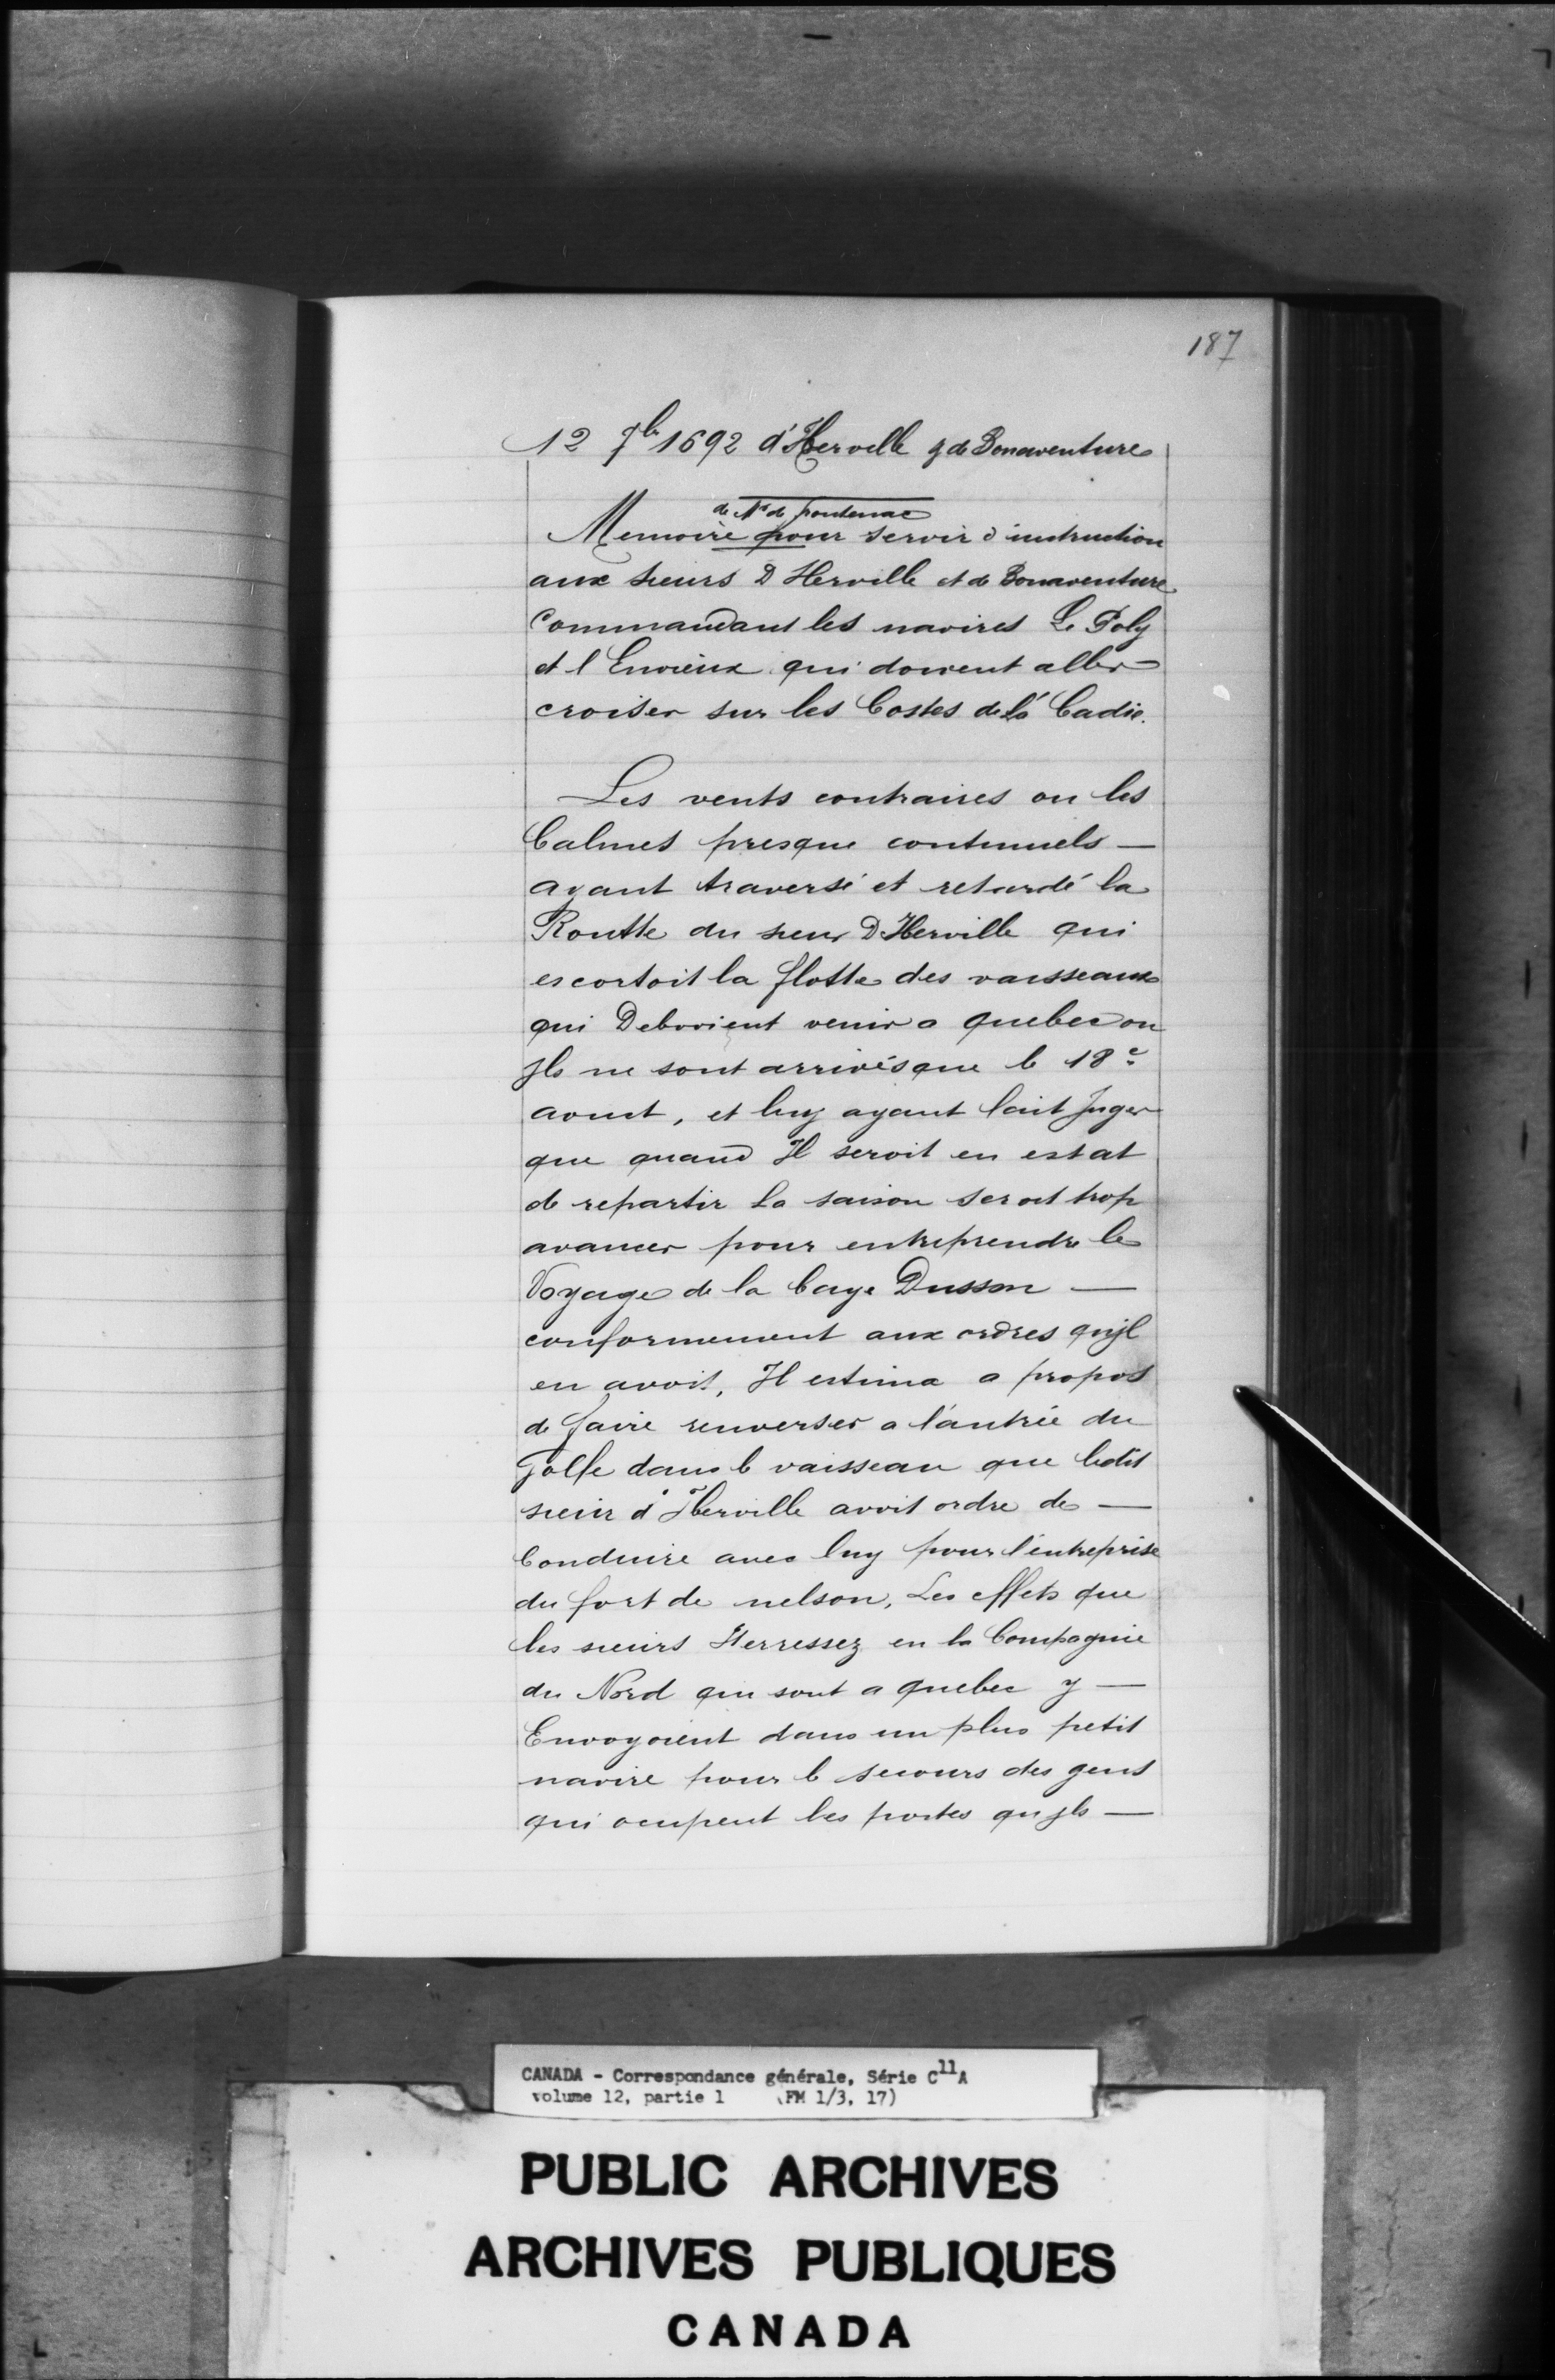 187
12 7br 1692 d'Iberville & de Bonaventure
de Mr de frontenac
Memoire pour servir d'instruction
aux sieurs D Iberville et de Bonaventure
Commandant les navires Le Poly
et l Envieux qui doivent aller
croiser sur les Costes de la Cadie.
Les vents contraires ou les
Calmes presque continuels —
ayant traversé et retardé la
Routte du sieur D Iberville qui
escortoit la flotte des vaisseaux
qui Debvoient venir a quebec ou
Ils ne sont arrivés que le 18e
aoust, et luy ayant fait Juger
que quand Il seroit en estat
de repartir la saison seroit trop
avancer pour entreprendre le
Voyage de la baye Dusson —
conformement aux ordres qu'jl
en avoit, Il estima a propos
de faire renverser a l'antrée du
Golfe dans le vaisseau que ledit
sieur d'Iberville avoit ordre de —
Conduire avec luy pour l'entreprise
du fort de nelson, Les effets que
les sieurs Iterressez en la Compagnie
du Nord qui sont a quebec y —
Envoyoient dans un plus petit
navire pour le secours des gens
qui ocupent les postes qu jls —
CANADA - Correspondance générale, Série C11A
volume 12, partie 1 (FM 1/3, 17)
PUBLIC ARCHIVES
ARCHIVES PUBLIQUES
CANADA